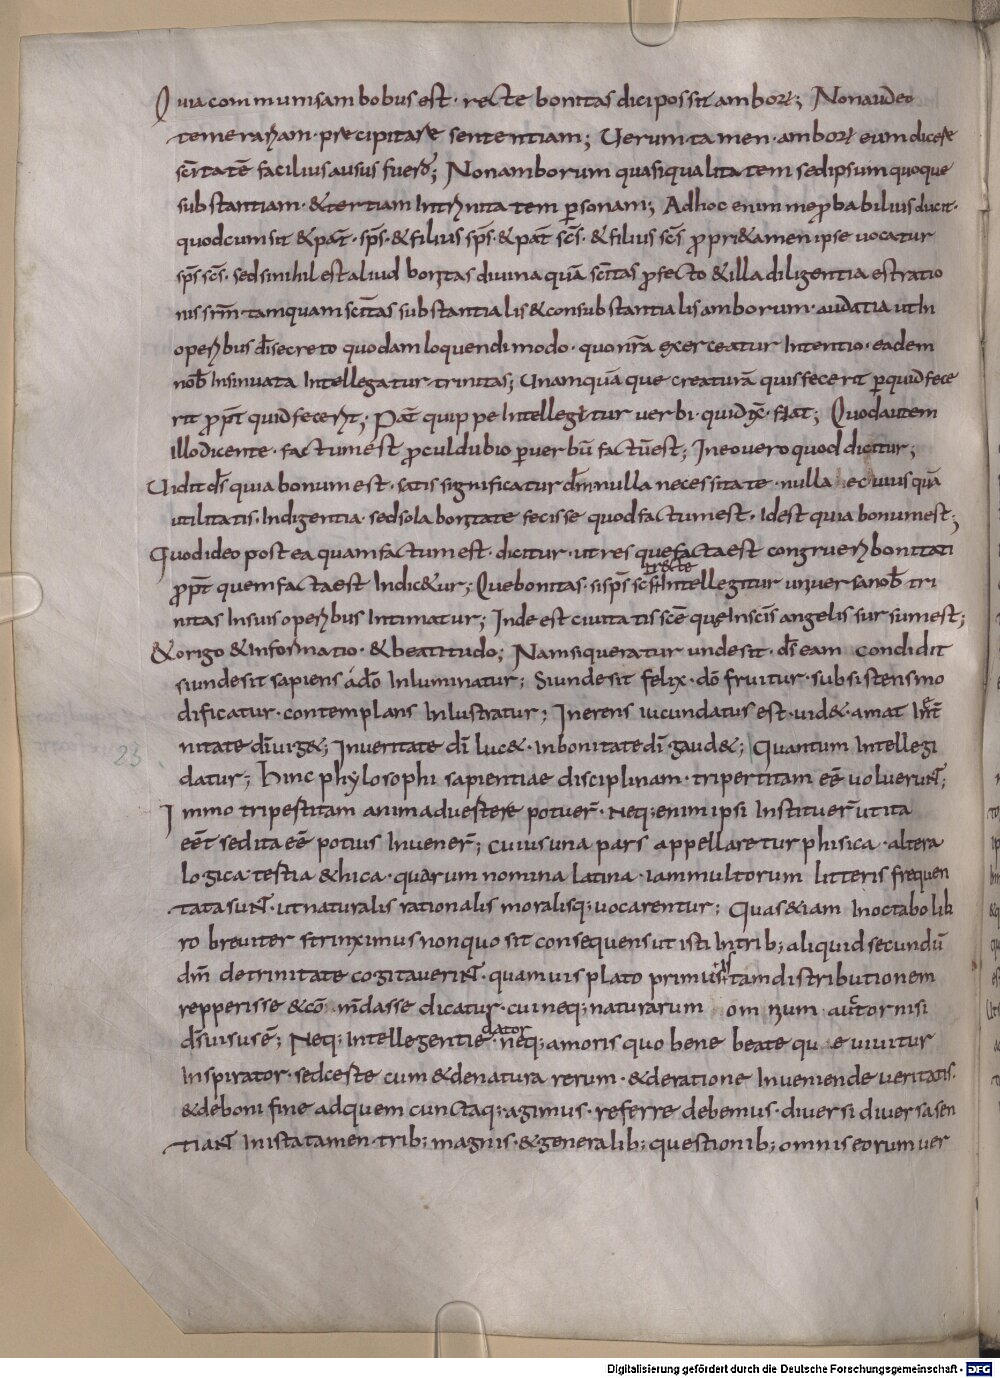 Quia communis ambobus est · recte bonitas dici possit amborū; Non audeo
temerariam · precipitare sententiam; Uerum tamen · amborū eum dicere
scītatē facilius ausus fuerō; Non amborum quasi qualitatem sed ipsum quoque
substantiam · & tertiam In trinitatem psonam; Ad hoc enim me pbabilius ducit ·
quod cum sit & pat̄ · sps̄ · & filius sps̄ · & pat̄ scs̄ · & filius scs̄ pprie tamen ipse uocatur
sps̄ scs̄ · sed si nihil est aliud bonitas diuina quā scītas pfecto & illa diligentia est ratio
nis · tamquam scītas substantialis & consubstantialis amborum · audatia ut In
operibus dī secreto quodam loquendi modo · quo nr̄a exerceatur Intentio · eadem
nob̄ Insinuata Intellegatur trinitas; Unamquāque creaturā quis fecerit p quid fece
rit ppt̄ quid fecerit; Pat̄ quippe Intellegitur uerbi · qui dix̄ · fiat; Quod autem
illo dicente · factum est pculdubio p uerbū factū est; In eo uero quod dicitur;
Uidit ds̄ quia bonum est · satis significatur dm̄ nulla necessitate · nulla suiusquā
utilitatis · Indigentia · sed sola bonitate fecisse quod factum est · Id est quia bonum est;
Quod ideo postea quam factum est · dicitur · ut res que facta est congruere bonitati
ppt̄ quem facta est Indic&ur; Que bonitas · si sps̄ scs̄ recte Intellegitur uniuersa nob̄ tri
nitas In suis operibus Intimatur; Inde est ciuitatis scē que In scīs angelis sursum est;
& origo & Informatio · & beatitudo; Nam si queratur unde sit · ds̄ eam condidit
si unde sit sapiens a dō Inluminatur; Si unde sit felix · dō fruitur · subsistens mo
dificatur · contemplans Inlustratur; Inerens iucundatus est · uid& · amat In et̄
nitate dī uig&; In ueritate dī luc& · In bonitate dī gaud&; Quantum Intellegi
datur; Hinc phylosophi sapientiae disciplinam · tripertitam eē uoluerunt;
Immo tripertitam animaduertere potuer̄ · Neq; enim ipsi Instituer̄ ut ita
eēt sed ita eē potius Inuener̄; Cuius una pars appellaretur phisica · altera
logica tertia &hica · quarum nomina latina · iam multorum litteris frequen
tata sunt · ut naturalis rationalis moralisq; uocarentur; Quas &iam In octabo lib
ro breuiter strinximus non quo sit consequens ut isti In trib; aliquid secundū
dm̄ de trinitate cogitauerint · quamuis plato primus Istam distributionem
repperisse & cōmdasse dicatur · cui neq; naturarum omnium auctor nisi
ds̄ uisus ē; Neq; Intellegentie dator · neq; amoris quo bene beateque uiuitur
Inspirator · sed certe cum & de natura rerum · & de ratione Inueniende ueritatis ·
& de boni fine ad quem cuncta q; agimus · referre debemus · diuersi diuersa sen
tiant In ista tamen trib; magnis · & generalib; questionib; omnis eorum uer
23
Digitalisierung gefördert durch die Deutsche Forschungsgemeinschaft - DFG